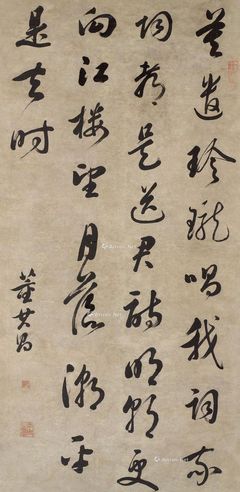 莫遣玲瓏唱我詞我
詞都是送君詩明朝更
向江樓望月落潮平
是去時
董其昌